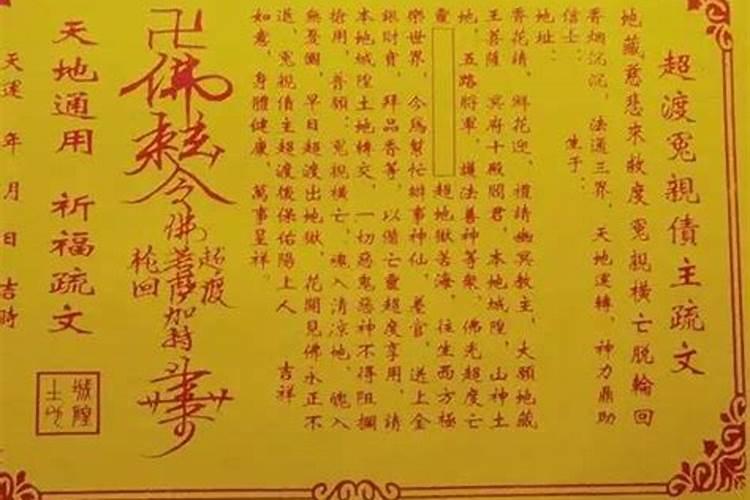 超渡冤親債主疏文
地藏慈悲來救度冤親橫亡脫輪回
香烟沉沉，法通三界，天地運轉，神力鼎助
信士：　生于：
地址：
香花請，鮮花迎，禮請幽冥教主，大願地藏
王菩薩 冥府十殿閻君，本地城隍，山神土
地，五路將軍，護法善神等衆，佛光超度亡
靈　超地獄苦海，往生西方極
樂世界，今爲幫忙辦事神仙，差官，送上金
銀財寶，拜品香等，以備亡靈超度享用，請
本地城隍土地轉交，一切惡鬼惡神不得阻攔
搶用，普願：冤親橫亡，魂入清凉地，魄入
無憂國，早日超渡出地獄，花開見佛永正不
退，冤親債主超渡後保佑陽上人　吉祥
如意，身體健康，萬事呈祥。
卍
佛
令
佛菩薩加持
超度
輪回
天地通用 祈福疏文
城隍
天運 年 月 日 吉時